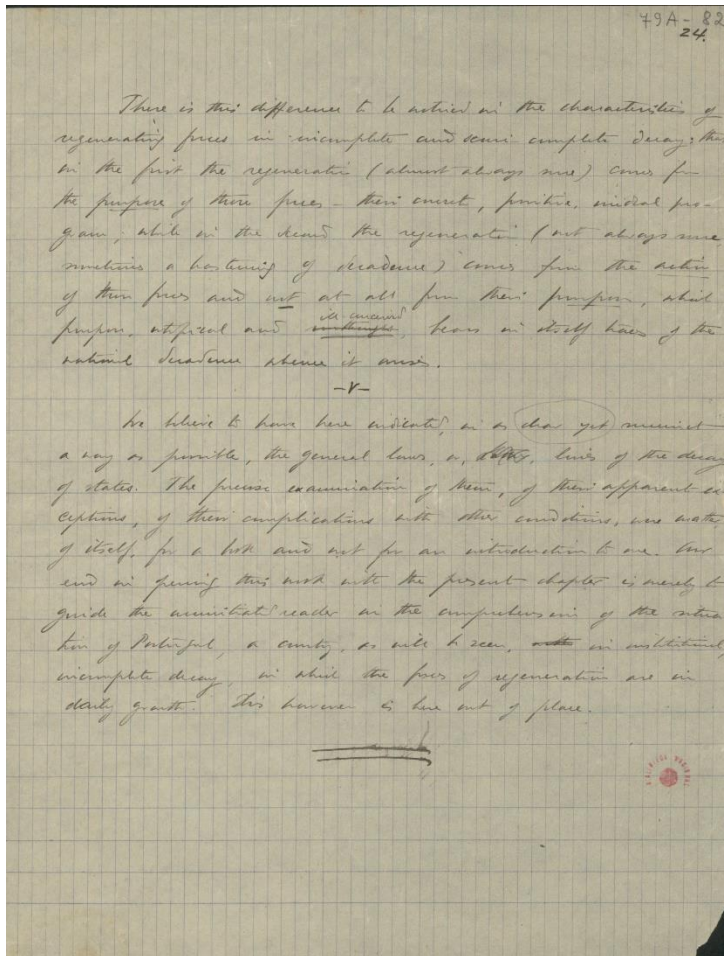 79A - 82
24.
There is this difference to be noticed in the characteristics of
regenerating forces in incomplete and semi complete decay: that
in the first the regeneration (almost always sure) comes from
the purpose of those forces — their concrete, positive, radical pro-
gram; while in the second the regeneration (not always sure
sometimes a hastening of decadence) comes from the action
of these forces and not at all from their purpose, which
purpose, atypical and ill-conceived, bears in itself traces of the
national decadence whence it arises.
—v—
We believe to have here indicated, in as clear yet succinct
a way as possible, the general laws, or, lines of the decay
of states. The precise examination of them, of their apparent ex-
ceptions, of their complications with other conditions, were matter
of itself, for a book and not for an introduction to one. Our
end in opening this work with the present chapter is merely to
guide the uninitiated reader in the comprehension of the situa
tion of Portugal, a country, as will be seen, in institutional,
incomplete decay, in which the forces of regeneration are in
daily growth. This however is here out of place.
BIBLIOTECA NACIONAL